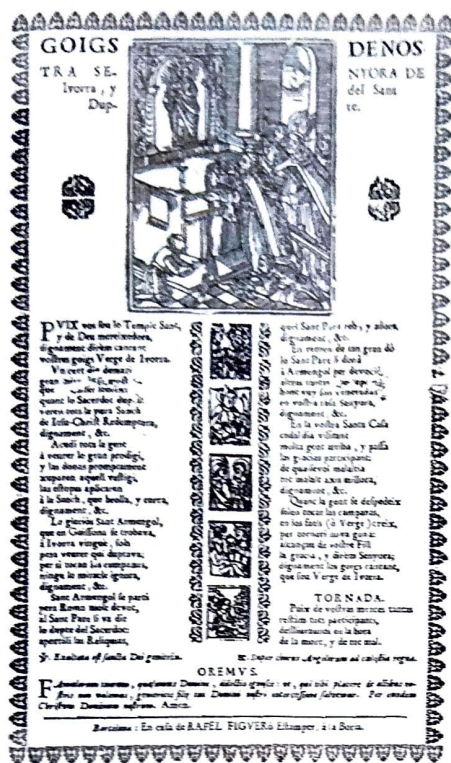 GOIGS DE NOS
TRA SE- NYORA DE
Ivorra, y del Sant
Dup- te.
PVIX vos sou lo Temple Sant,
y de Deu mereixedora,
dignament direm cantant
vostres goigs Verge de Ivorra.
Un cert dia
gran
que
quant lo Sacerdot
veren tota la pura Sanch
de Jesu-Christ Redemptora,
dignament, &c.
Acudí tota la gent
á veurer lo gran prodigi,
y las donas promptament
aquell vestigi,
las estopas aplicaren
á la Sanch, que brolla, y corra,
dignament, &c.
Lo gloriós Sant Armengol,
que en Guissona se trobava,
á Ivorra vingué, sols
pera veurer qui duptava;
per sí tocan las campanas,
ningú lo miracle ignora,
dignament, &c.
Sant Armengol se partí
pera Roma molt devot,
al Sant Pare li va dir
lo dupte del Sacerdot:
las Reliquias,
quel Sant Pare reb, y adora,
dignament, &c.
En retorn de un gran dó
lo Sant Pare li doná
á Armengol per devoció,
altres tantas
son veneradas
en vostra casa Senyora,
dignament, &c.
En la vostra Santa Casa
cada dia visitant
molta gent arriba, y passa
las gracias participant;
de qualsevol malaltia
tot malalt aixi millora,
dignament, &c.
Quant la gent se despedeix
solen tocar las campanas,
en los faels (ò Verge) creix,
per tornari nova gana:
alcançau de vostre Fill
la gracia, y direm Senyora;
dignament los goigs cantant,
que sou Verge de Ivorra.
TORNADA.
Puix de vostras merces tantas
restám tots participants,
deslliuraunos en la hora
de la mort, y de tot mal.
℣. Exaltata est sancta Dei genitrix. ℟. Super choros Angelorum ad cœlestia regna.
OREMVS.
FAmulorum tuorum, quæsumus Domine, delictis ignosce: ut, qui tibi placere de actibus no-
stris non valemus, genitricis filij tui Domini nostri intercessione salvemur. Per eundem
Christum Dominum nostrum. Amen.
Barcelona: En casa de RAFEL FIGVERó Estamper, á la Boria.